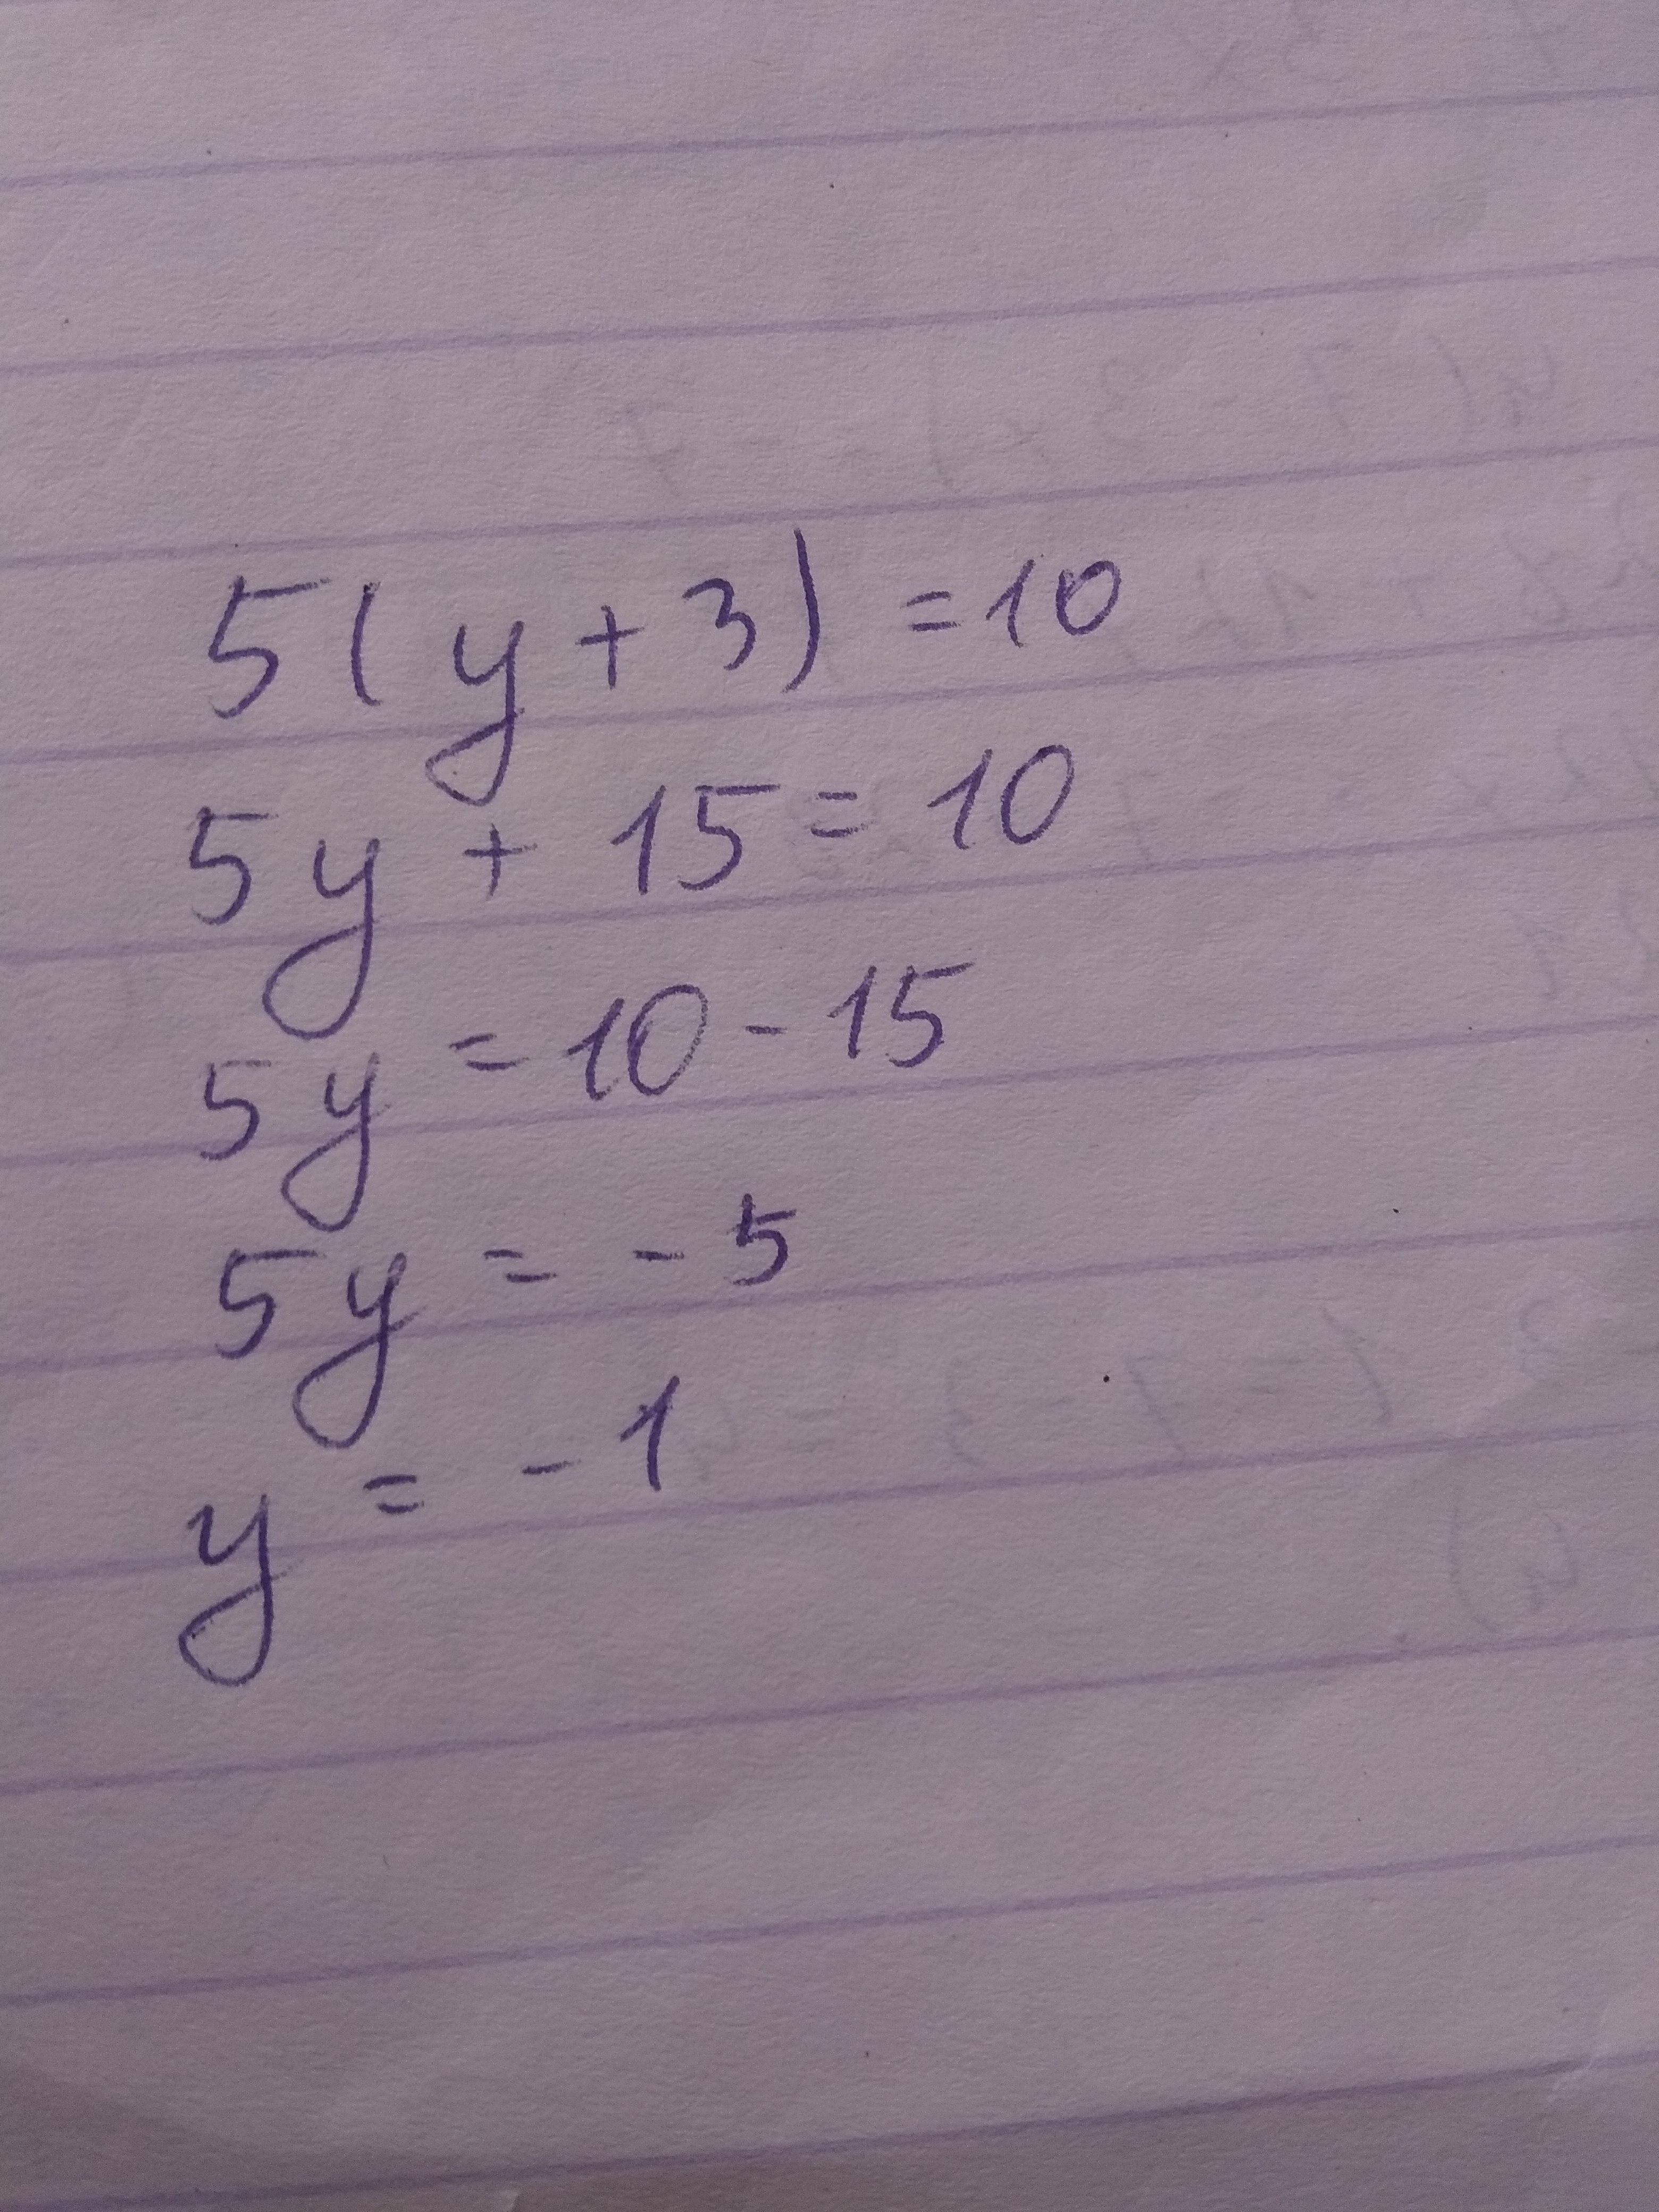 5(y+3)=10
5y+15=10
5y=10-15
5y=-5
y=-1